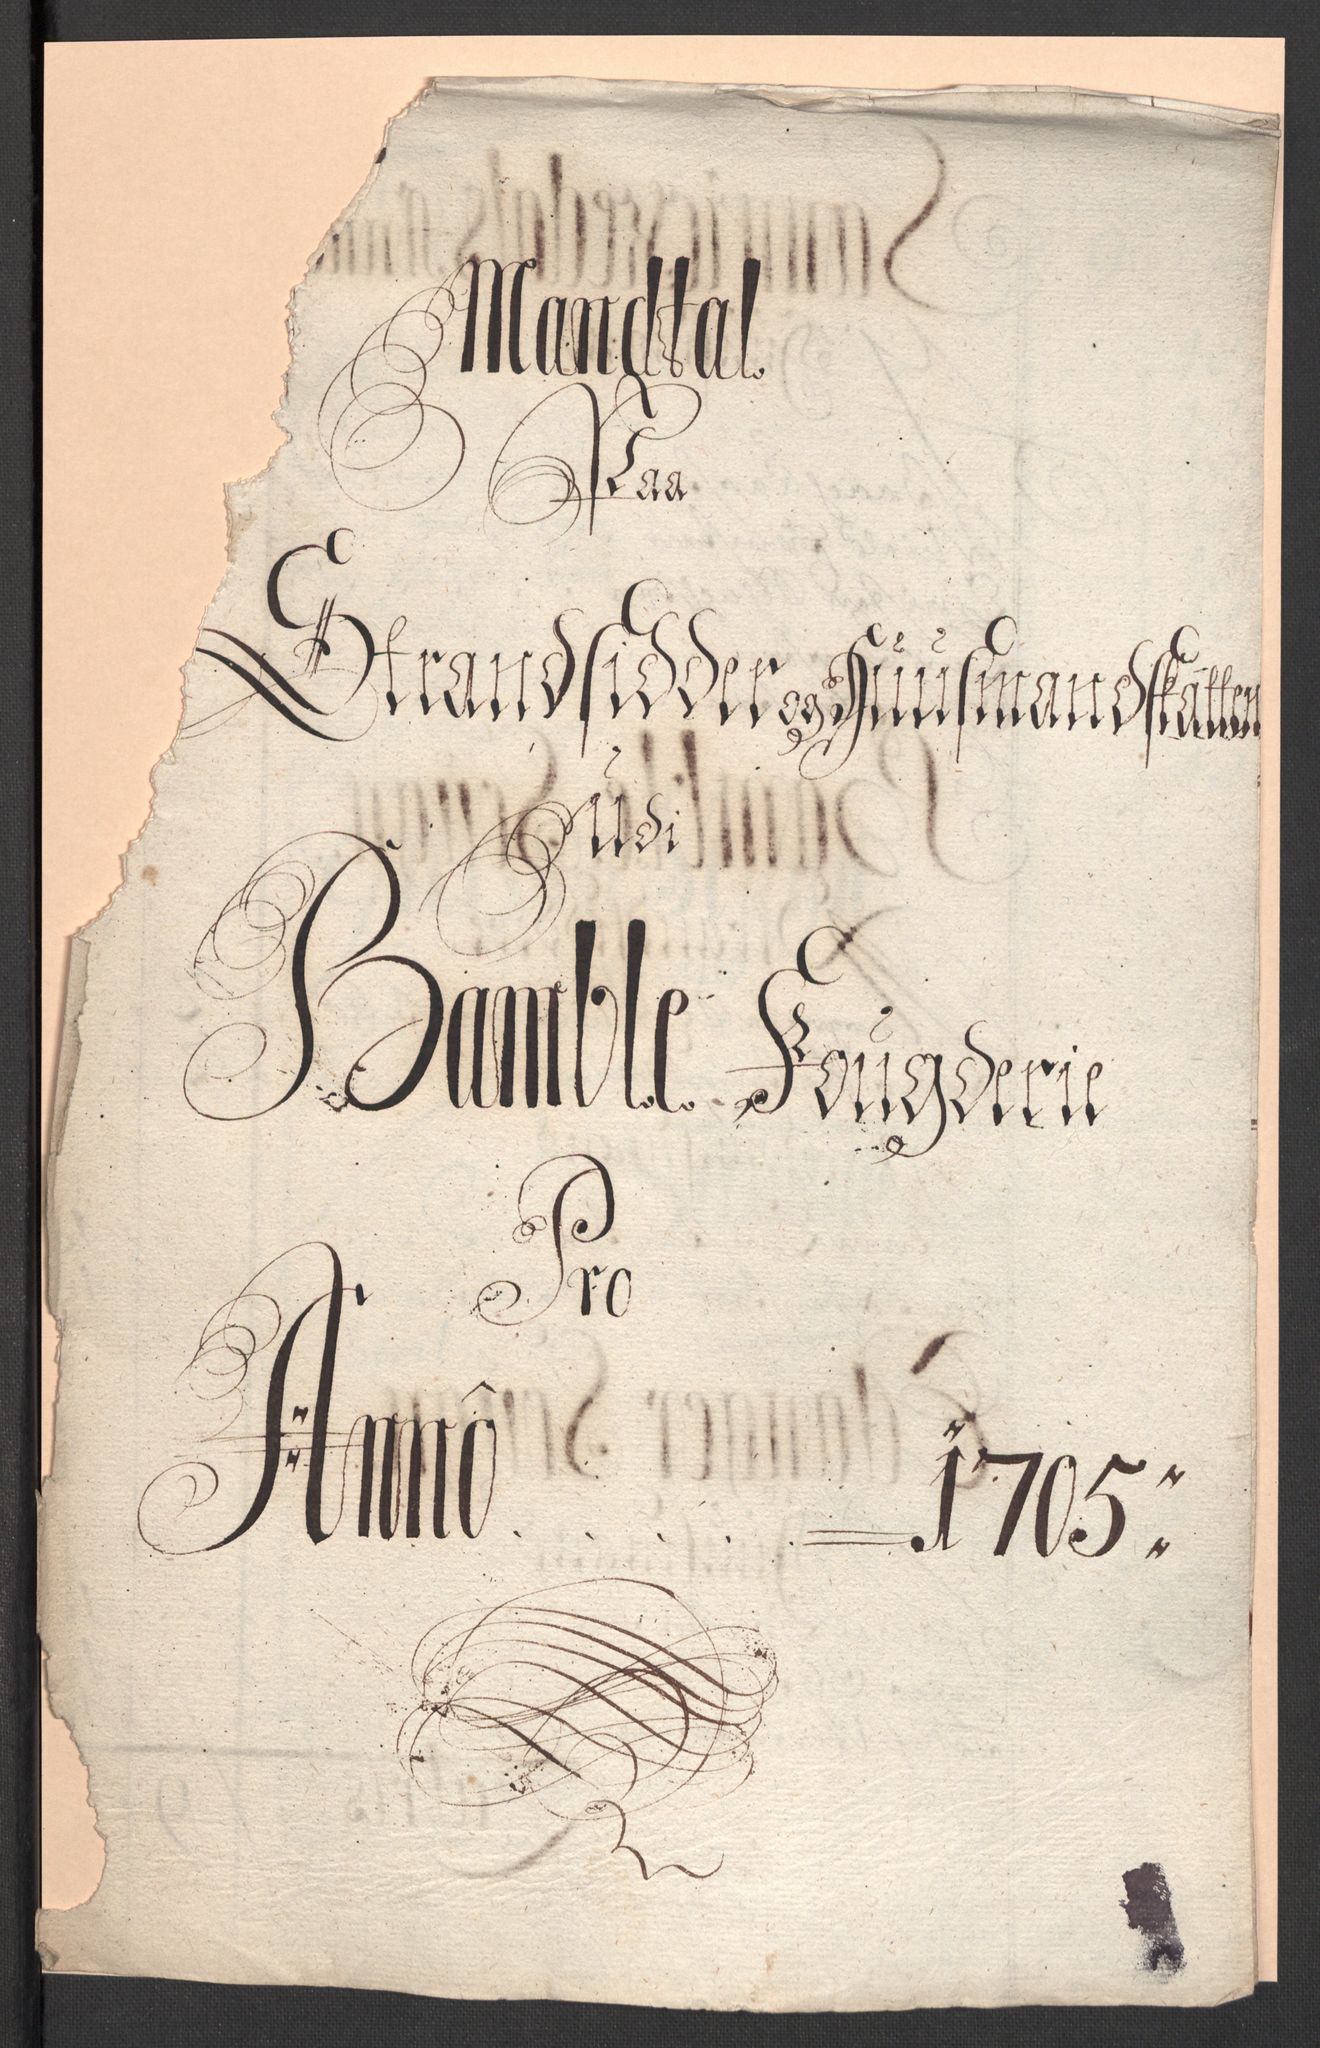 Mandtal.
Paa
Strandsidder og Huusmandskatten
Udi
Bamble Fougderie
Pro
Anno . . . . . 1705